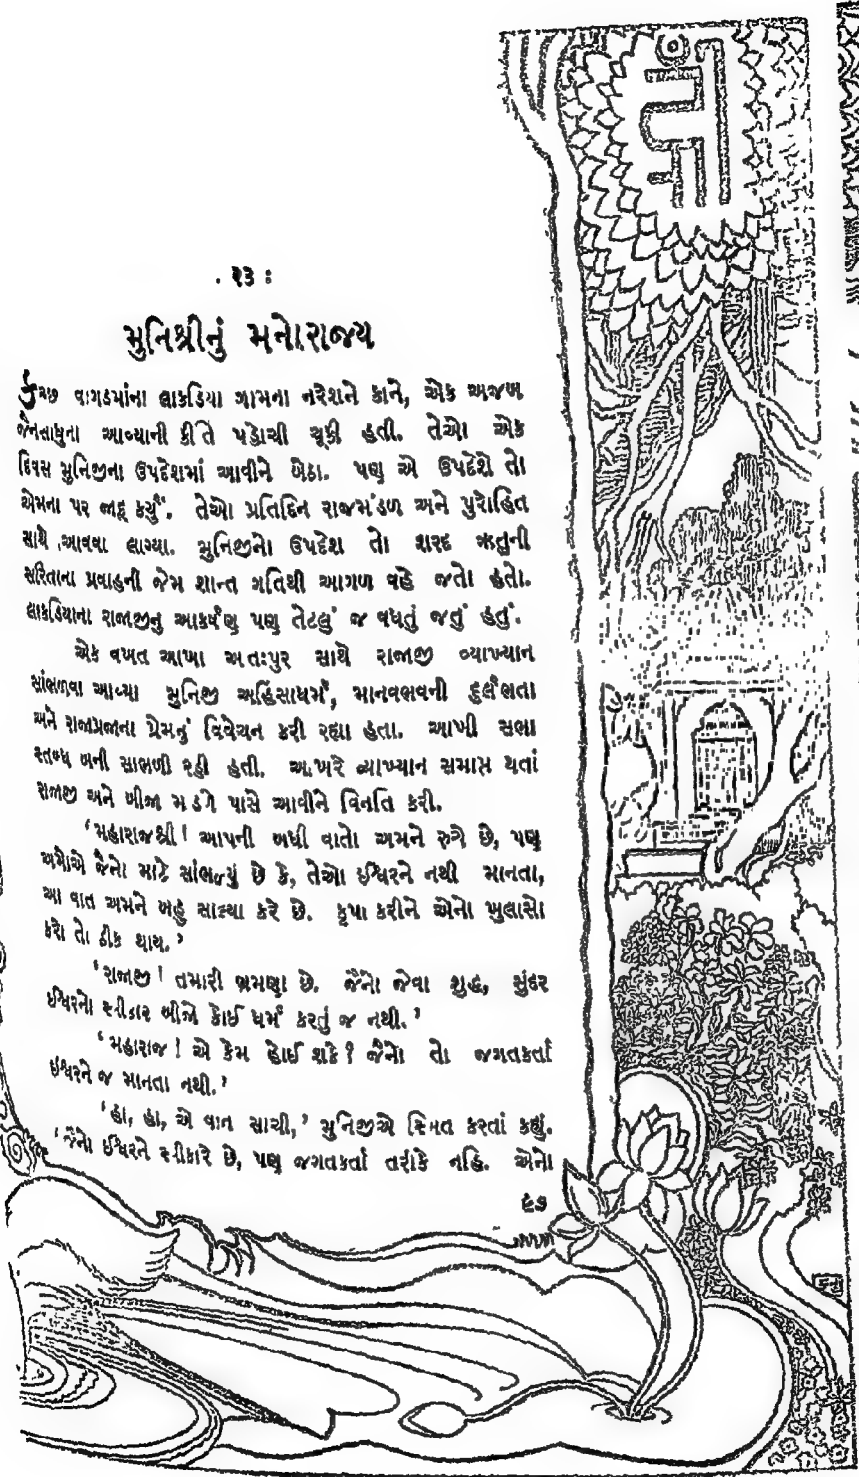 : ૧૩ :
મુનિશ્રીનું મનોરાજ્ય
કચ્છ વાગડમાંના લાકડિયા ગામના નરેશને કાને, એક અજબ
જૈનસાધુના આવ્યાની કીર્તિ પહોચી ચૂકી હતી. તેઓ એક
દિવસ મુનિજીના ઉપદેશમાં આવીને બેઠા. પણ એ ઉપદેશે તો
એમના પર જાદૂ કર્યું. તેઓ પ્રતિદિન રાજમંડળ અને પુરોહિત
સાથે આવવા લાગ્યા. મુનિજીનો ઉપદેશ તો શરદ ઋતુની
સરિતાના પ્રવાહની જેમ શાન્ત ગતિથી આગળ વહે જતો હતો.
લાકડિયાના રાજાજીનુ આકર્ષણ પણ તેટલું જ વધતું જતું હતું.
એક વખત આખા અતઃપુર સાથે રાજાજી વ્યાખ્યાન
સાંભળવા આવ્યા મુનિજી અહિંસાધર્મ, માનવભવની દુર્લભતા
અને રાજાપ્રજાના પ્રેમનું વિવેચન કરી રહ્યા હતા. આખી સભા
સ્તબ્ધ બની સાભળી રહી હતી. આખરે વ્યાખ્યાન સમાપ્ત થતાં
રાજાજી અને બીજા મડળે પાસે આવીને વિનતિ કરી.
‘મહારાજશ્રી! આપની બધી વાતો અમને રુચે છે, પણ
અમોએ જૈનો માટે સાંભળ્યું છે કે, તેઓ ઈશ્વરને નથી માનતા,
આ વાત અમને બહુ સાલ્યા કરે છે. કૃપા કરીને એનો ખુલાસો
કરો તો ઠીક થાય.’
‘રાજાજી! તમારી ભ્રમણા છે. જૈનો જેવા શુદ્ધ, સુંદર
ઈશ્વરનો સ્વીકાર બીજો કોઈ ધર્મ કરતું જ નથી.’
‘મહારાજ! એ કેમ હોઈ શકે? જૈનો તો જગતકર્તા
ઈશ્વરને જ માનતા નથી.’
‘હા, હા, એ વાત સાચી,’ મુનિજીએ સ્મિત કરતાં કહ્યું.
‘જૈનો ઈશ્વરને સ્વીકારે છે, પણ જગતકર્તા તરીકે નહિ. એનો
૯૭